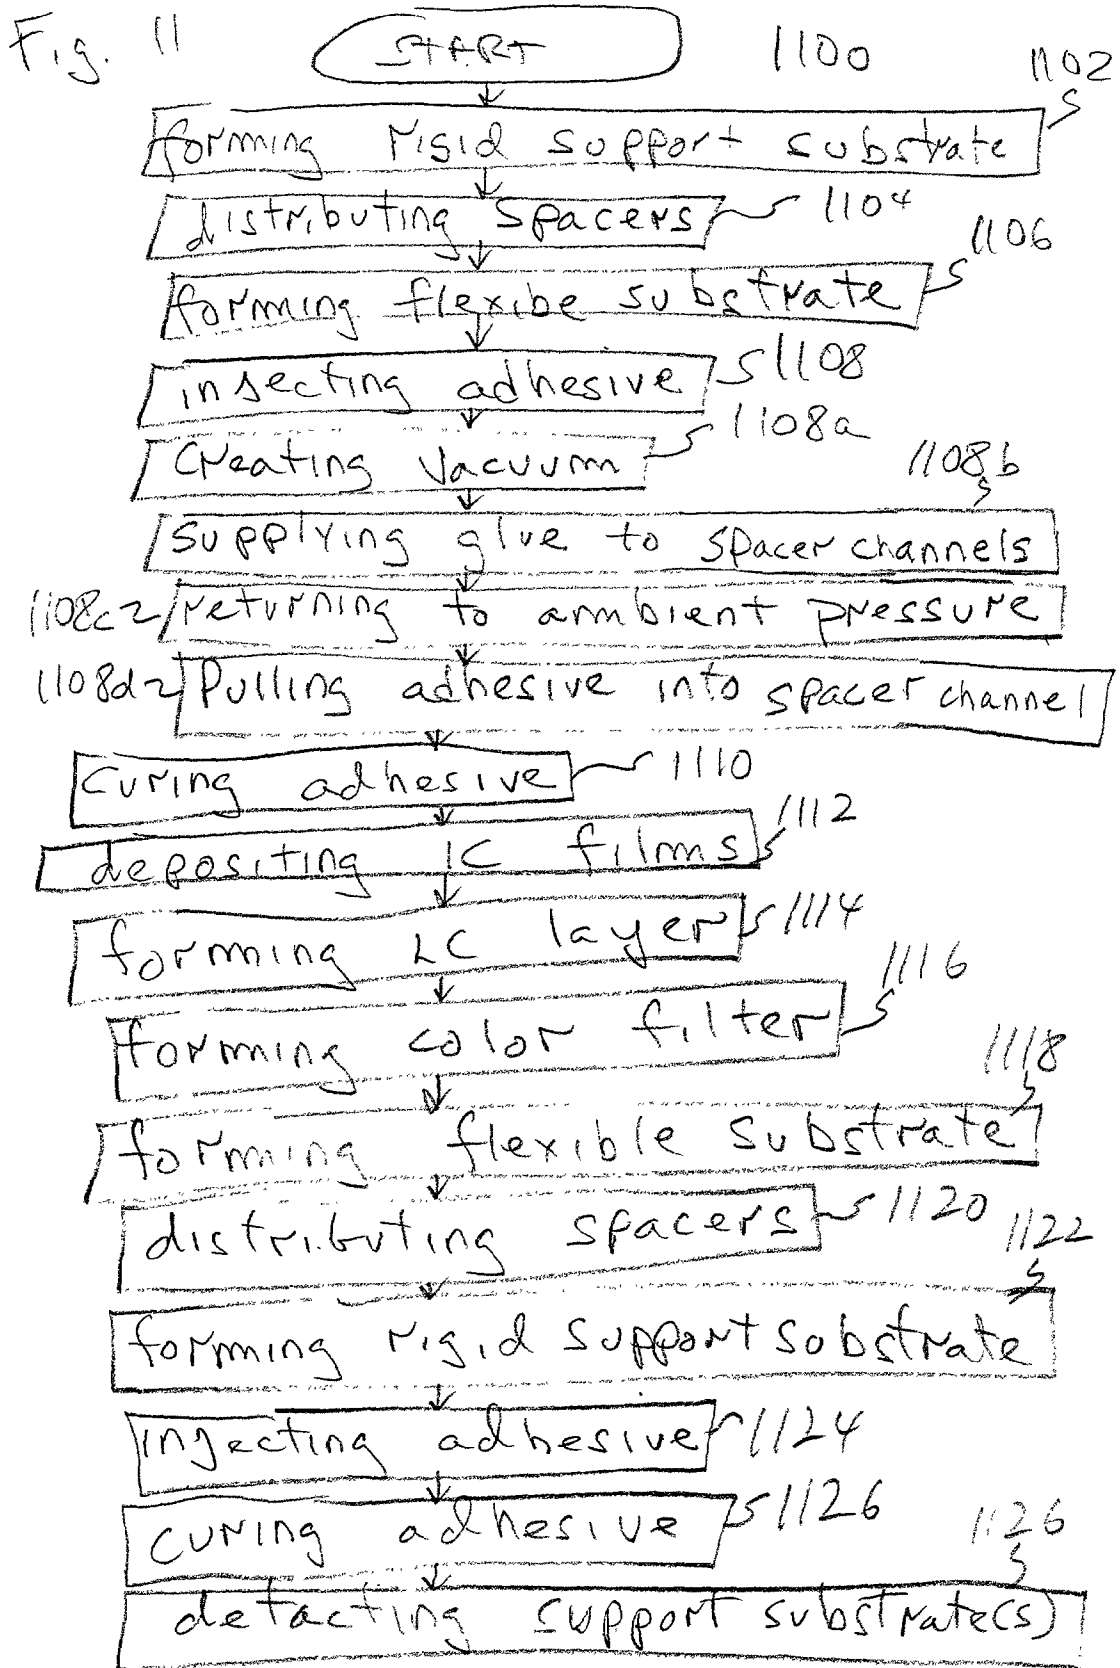 Fig. 11 START 1100
1102
forming rigid support substrate
distributing spacers 1104
1106
forming flexibe substrate
injecting adhesive 1108
creating vacuum 1108a
1108b
supplying glue to spacer channels
1108c returning to ambient pressure
1108d pulling adhesive into spacer channel
curing adhesive 1110
depositing IC films 1112
forming LC layer 1114
forming color filter 1116
1118
forming flexible substrate
distributing spacers 1120
1122
forming rigid support substrate
injecting adhesive 1124
curing adhesive 1126
1126
detacting support substrate(s)